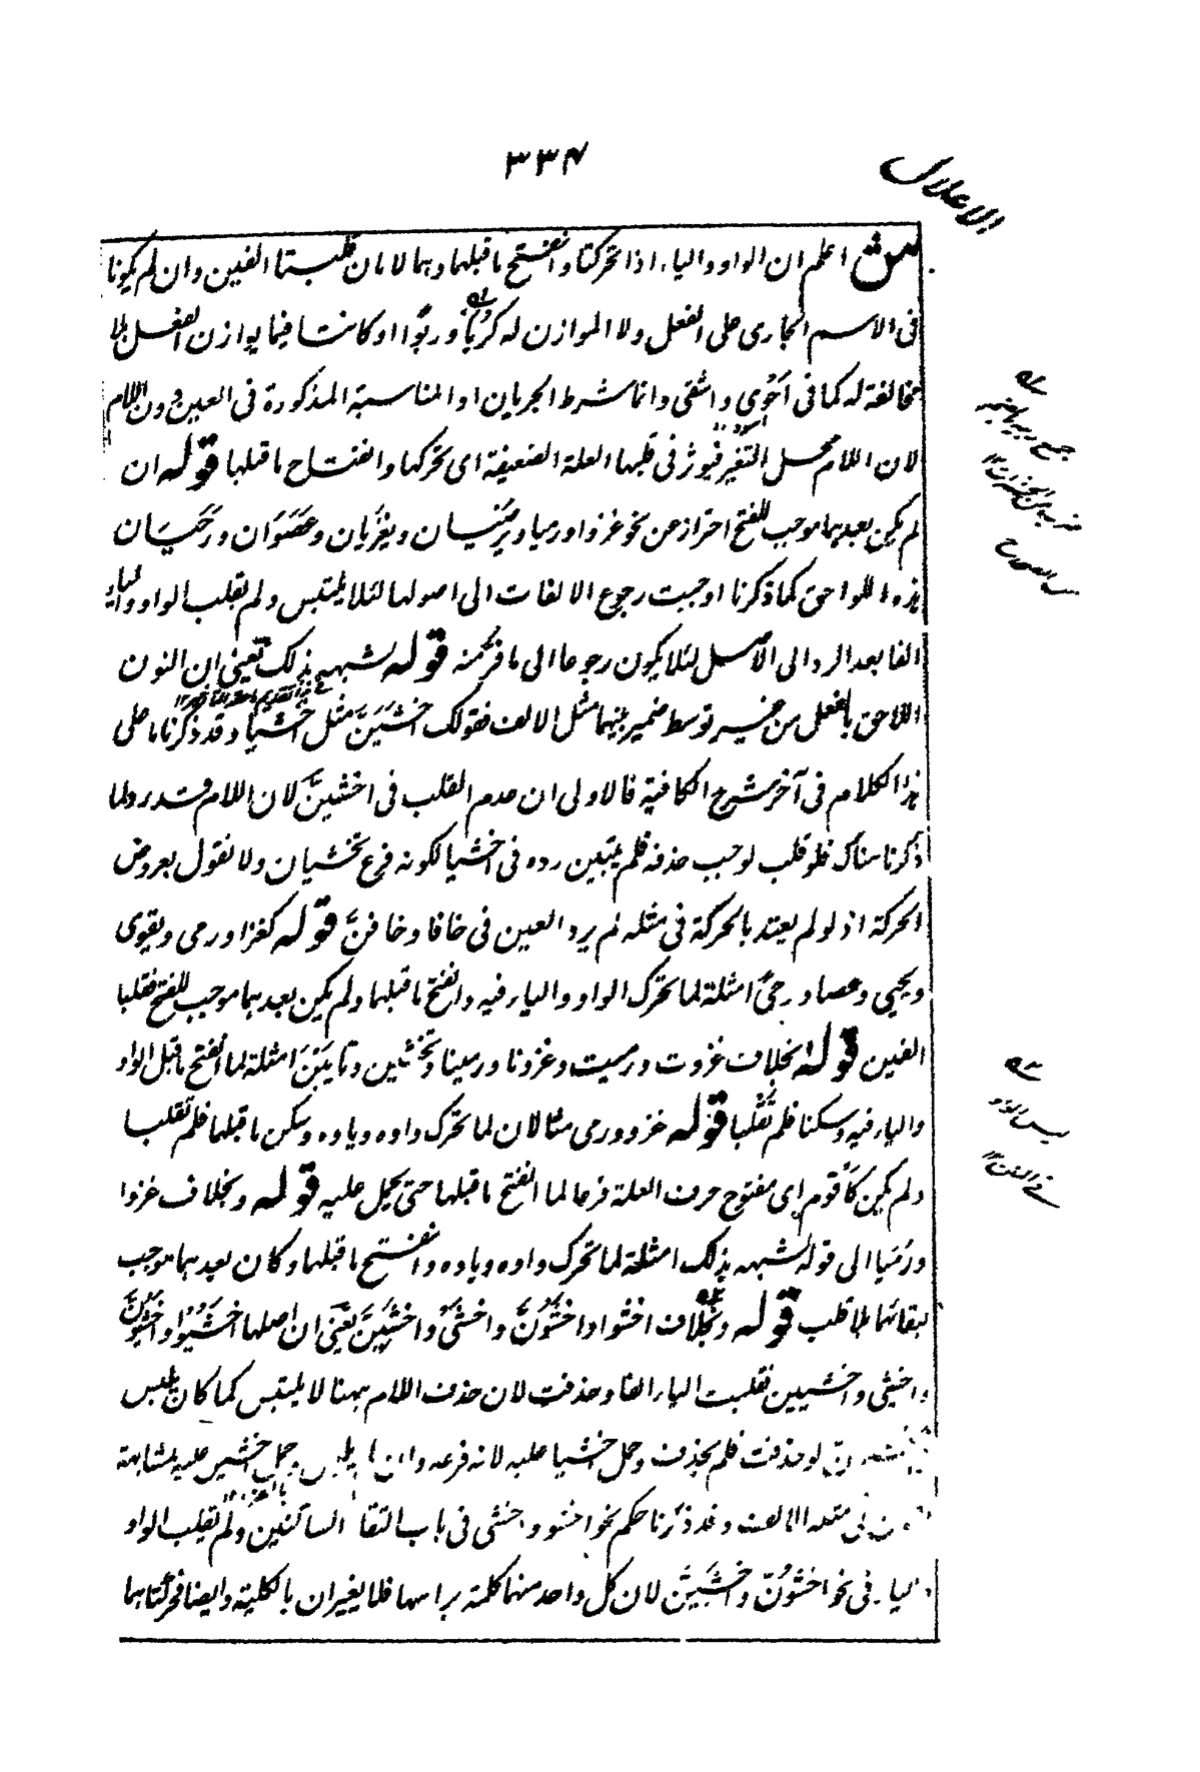 الاعلال
٣٣٤
ش اعلم ان الواو والياء اذا تحركتا وانفتح ما قبلهما وهما لامان قلبتا الفين وان لم يكونا
فى الاسم الجارى على الفعل ولا الموازن له كرُبًا وربوا او كانتا فيما يوازن الفعل بلا
مخالفة له كما فى اَحْوٰى واشقى وانما شرط الجريان او المناسبة المذكورة فى العين دون اللام
لان اللام محل التغير فيوثر فى قلبها العلة الضعيفة اى تحركها وانفتاح ما قبلها قوله ان
لم يكن بعدهما موجب للفتح احتراز عن نحو غزوا ورميا ويرضيان ويغزيان وعَصَوَان ورَحَيَان
هذه اللواحق كما ذكرنا اوجبت رجوع الالفات الى اصولها لئلا يلتبس ولم تقلب الواو والياء
الفا بعد الرد الى الاصل لئلا يكون رجوعا الى ما فر منه قوله لشبهه بذلك يعنى ان النون
اللاحق بالفعل من غير توسط ضمير بينهما مثل الالف فقولك اخْشَيَنَّ مثل اخْشَيَا وقد ذكرنا ما على
هذا الكلام فى آخر شرح الكافية فالاولى ان عدم القلب فى اخشينَّ لان اللام قد رد لما
ذكرنا هناك فلو قلب لوجب حذفه فلم يتبين رده فى اخشيا لكونه فرع تخشيان ولا نقول بعروض
الحركة اذ لو لم يعتد بالحركة فى مثله لم يرد العين فى خافا وخافنَّ قوله كغزا ورمى ويقوى
ويحيى وعصا ورحىً امثلة لما تحرك الواو والياء فيه وانفتح ما قبلهما ولم يكن بعدهما موجب للفتح فقلبا
الفين قوله بخلاف غزوت ورميت وغزونا ورمينا وتخشين وتابَيْنَ امثلة لما انفتح ما قبل الواو
والياء فيه وسكنا فلم تقلبا قوله غزو ورمى مثالان لما تحرك واوه وياؤه وسكن ما قبلهما فلم تقلب
ولم يكن كاَقْوَمَ اى مفتوح حرف العلة فرعا لما انفتح ما قبلها حتى يحمل عليه قوله وبخلاف غزوا
ورَمَيَا الى قوله لشبهه بذلك امثلة لما تحرك واوه وياؤه وانفتح ما قبلهما وكان بعدهما موجب
لبقائهما بلا قلب قوله وبخلاف اخشَوا واخْشَوُنَّ واخشَىْ واخشَيِنَّ يعنى ان اصلها اخْشَيُوْا واخْشَيُوُنَّ
واخشيى واخشيين فقلبت الياء الفا وحذفت لان حذف اللام ههنا لا يلتبس كما كان يلبس
لو حذفت فلم يحذف وحمل اخشيا عليه لانه فرعه وان لم يلبس وحمل اخشين عليه لمشابهة
وقد ذكرنا حكم نحو اخشو واخشى فى باب التقاء الساكنين ولم تقلب الواو
والياء فى نحو اخشَوُنَّ واخْشَيِنَّ لان كل واحد منهما كلمة براسها فلا يغيران بالكلية وايضا فحركتاهما